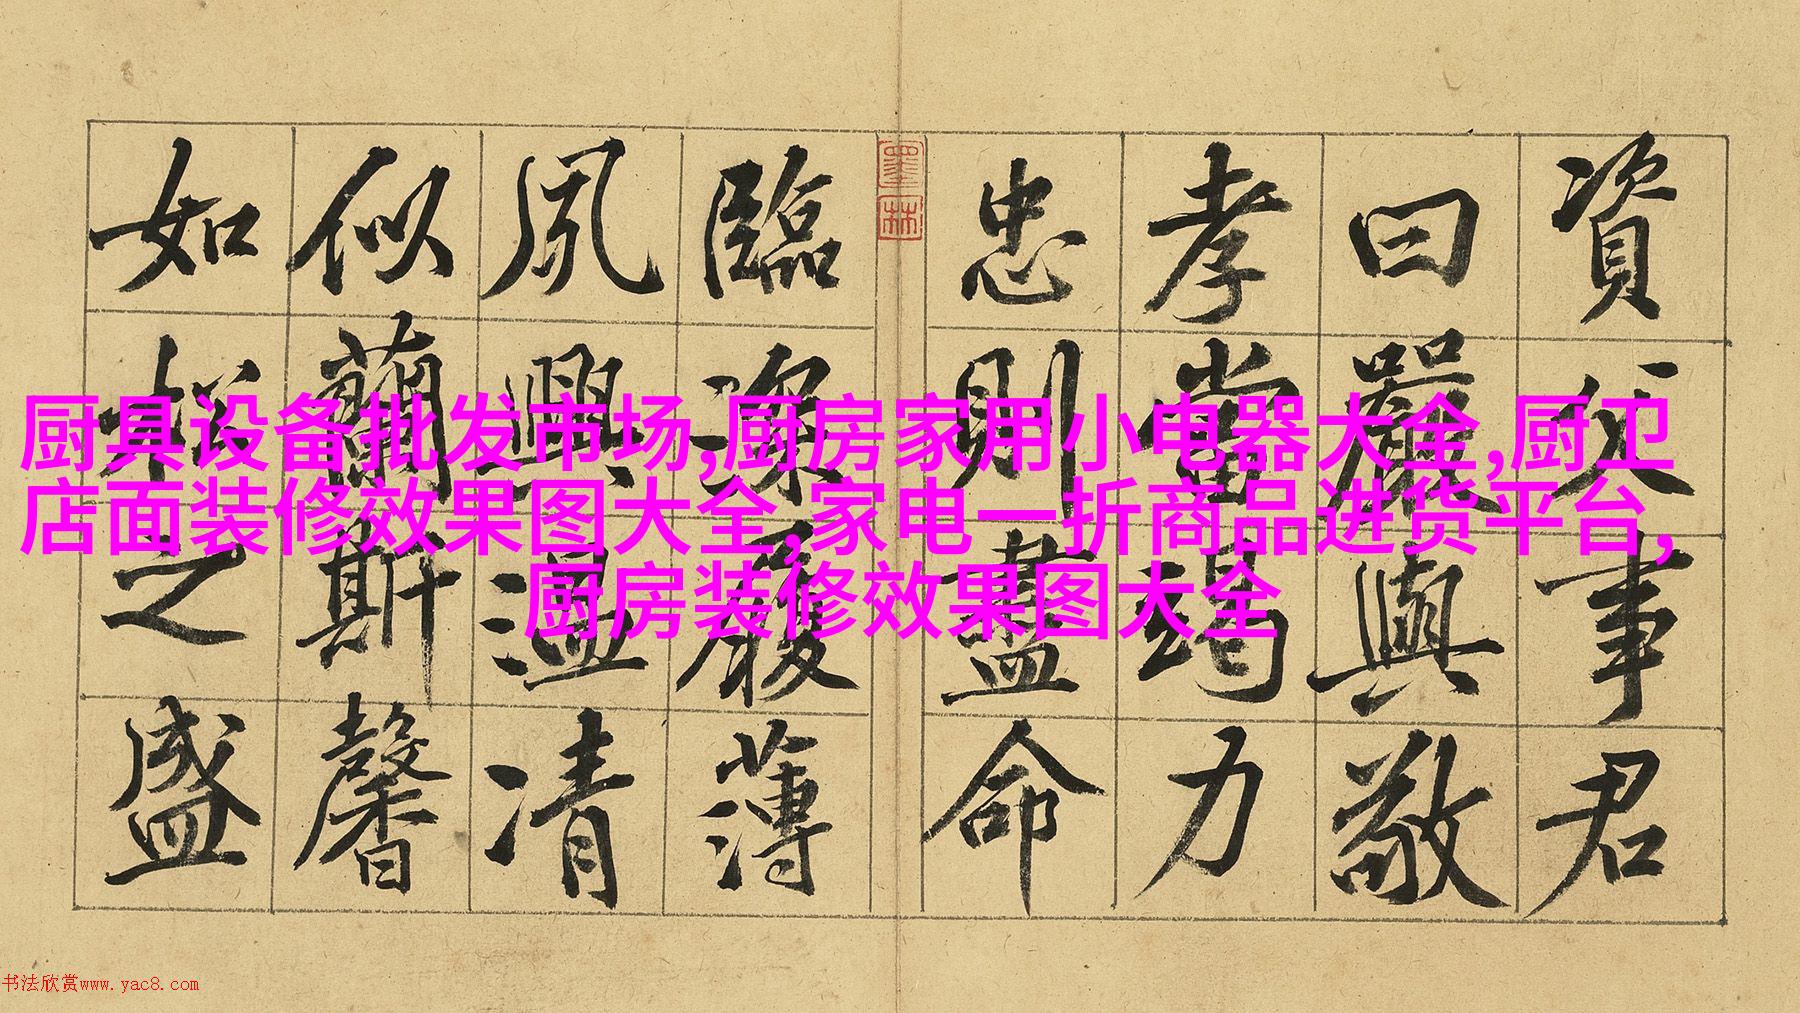 資父事君
曰嚴與敬
孝當竭力
忠則盡命
臨深履薄
夙興温凊
似蘭斯馨
如松之盛
墨林
厨具设备批发市场,厨房家用小电器大全,厨卫
店面装修效果图大全,家电一折商品进货平台,
厨房装修效果图大全
书法欣赏www.yac8.com